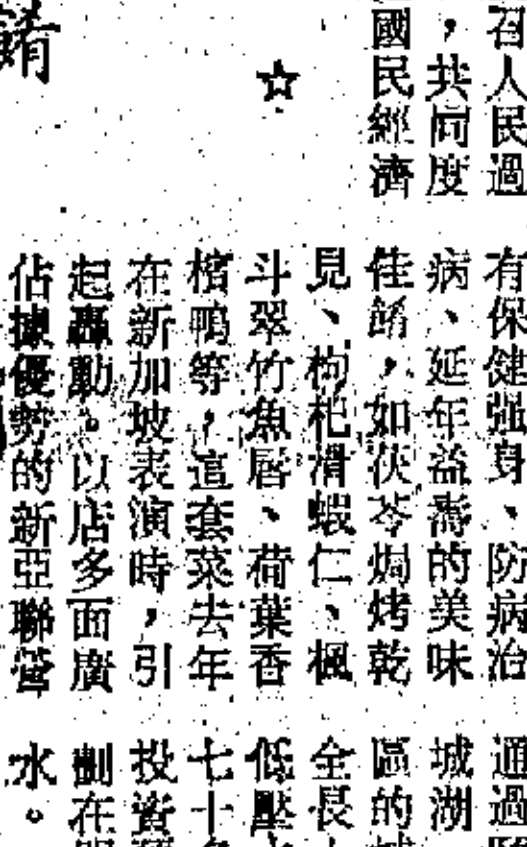 召人民過
，共同度
國民經濟
☆
餚
有保健強身、防病治
病、延年益壽的美味
佳餚，如茯苓焗烤乾
見、枸杞滑蝦仁、楓
斗翠竹魚唇、荷葉香
檳鴨等，這套菜去年
在新加坡表演時，引
起轟動。以店多面廣
佔據優勢的新亞聯營
通過
城湖
區的
全長
低壓
七十
投資
劃在
水。